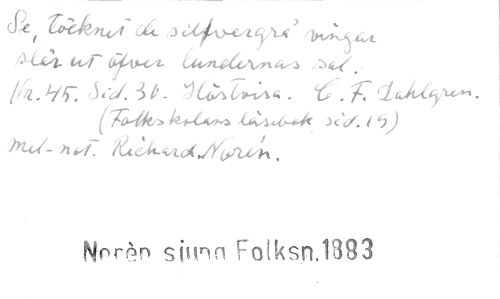 Se, töcknet de silfvergrå vingar
slår ut öfver lundernas sal.
Nr. 45. Sid. 30. Höstvisa. C. F. Dahlgren.
(Folkskolans läsebok, sid. 19)
Mel-not. Richard Norén.
Norèn sjung Folksn. 1883